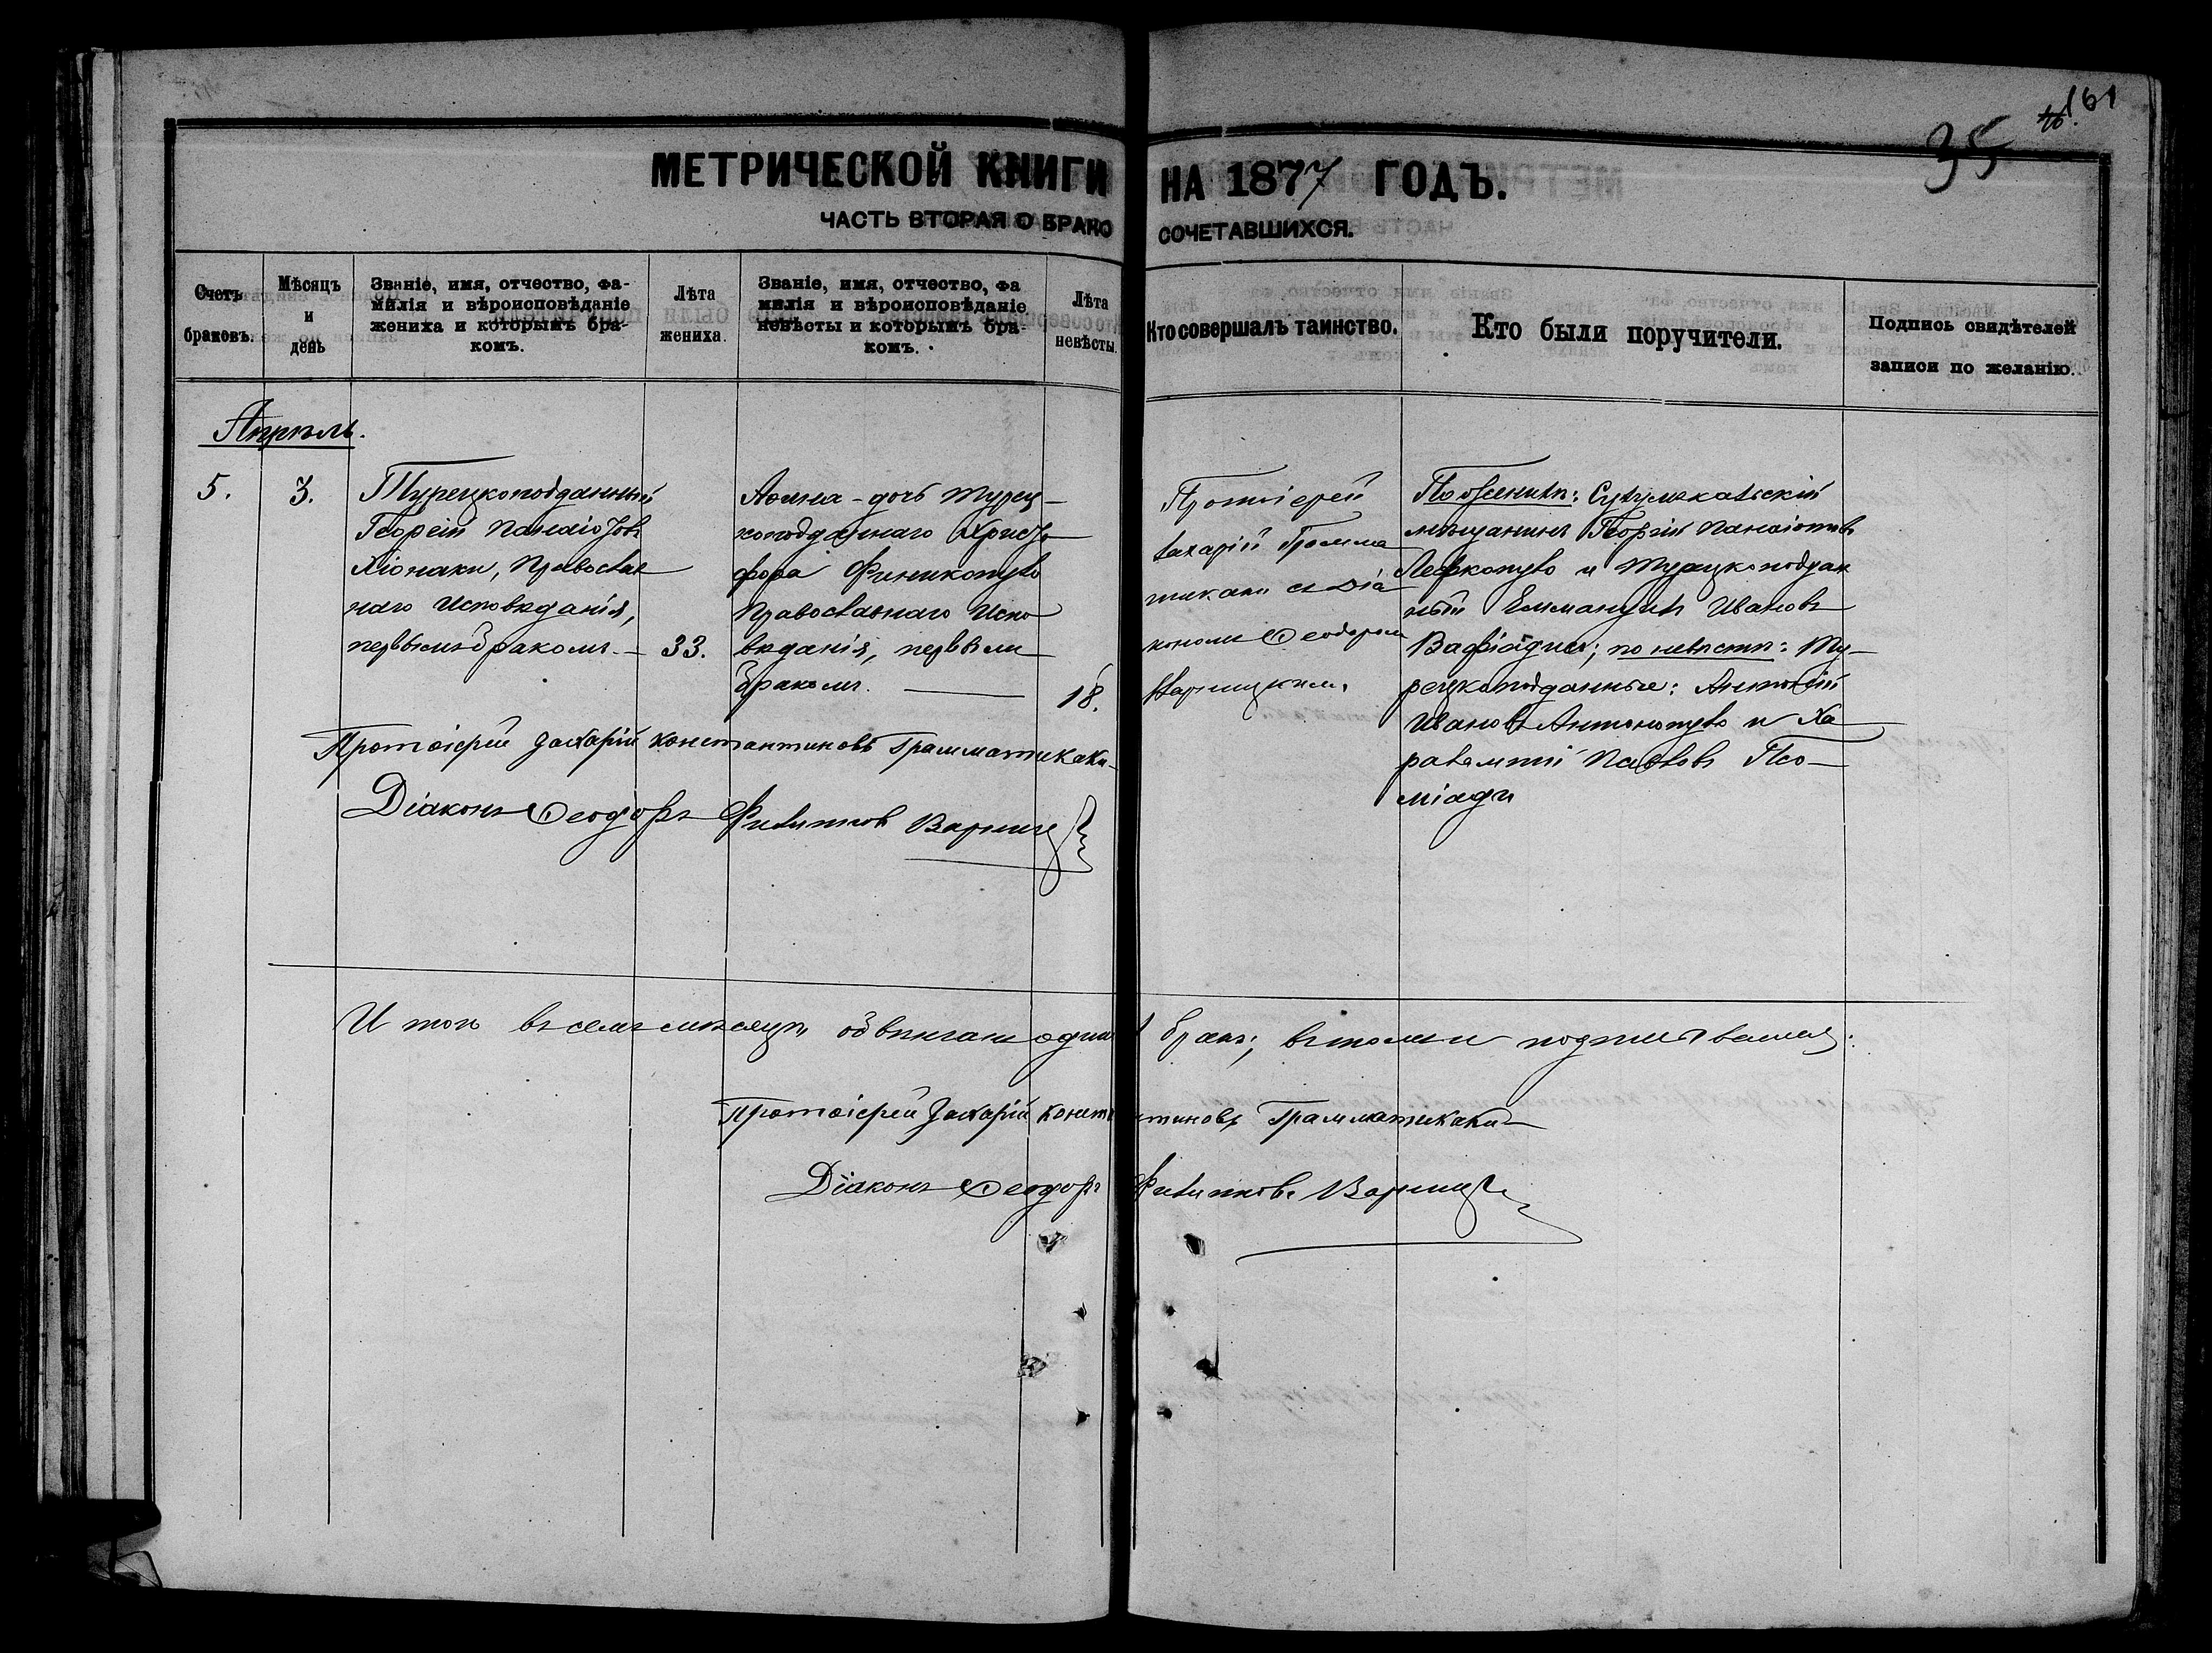 161
35
МЕТРИЧЕСКОЙ КНИГИ НА 1877 ГОДЪ.
ЧАСТЬ ВТОРАЯ О БРАКО СОЧЕТАВШИХСЯ.
Счетъ браковъ.
Мѣсяцъ и день
Званіе, имя, отчество, фа-
милія и вѣроисповѣданіе
жениха и которымъ бра-
комъ.
Лѣта жениха.
Званіе, имя, отчество, фа
милія и вѣроисповѣданіе
невѣсты и которымъ бра-
комъ.
Лѣта невѣсты.
Кто совершалъ таинство.
Кто были поручители.
Подпись свидѣтелей
записи по желанію.
Апрѣль.
5.
3.
Турецкоподданный
Георгій Панаіотовъ
Хіонаки, Православ
наго Исповѣданія,
первымъ бракомъ.
33.
дочь Турец-
коподданнаго Христо
фора Финикопуло
Православнаго Испо
вѣданія, первымъ
бракомъ.
18.
Протоіерей
Захарій Грамма
тикаки съ Діа
кономъ Ѳеодоромъ
Варницкимъ.
По женихѣ:
мѣщанинъ Георгій Панаіотовъ
Лефкопуло и Турецкоподдан
ный Еммануилъ Ивановъ
Вафіади; по невѣстѣ: Ту-
рецкоподданные: Антоній
Ивановъ Антонопуло и Ха
ралампій Павловъ Псо-
міади
Протоіерей Захарій Константиновъ Грамматикаки
Діаконъ Ѳеодоръ Филипповъ Варницк
Итого въ семъ мѣсяцѣ обвѣнчанъ одинъ бракъ; въ томъ и подписываемся:
Протоіерей Захарій Константиновъ Грамматикаки
Діаконъ Ѳеодоръ Филипповъ Варницк